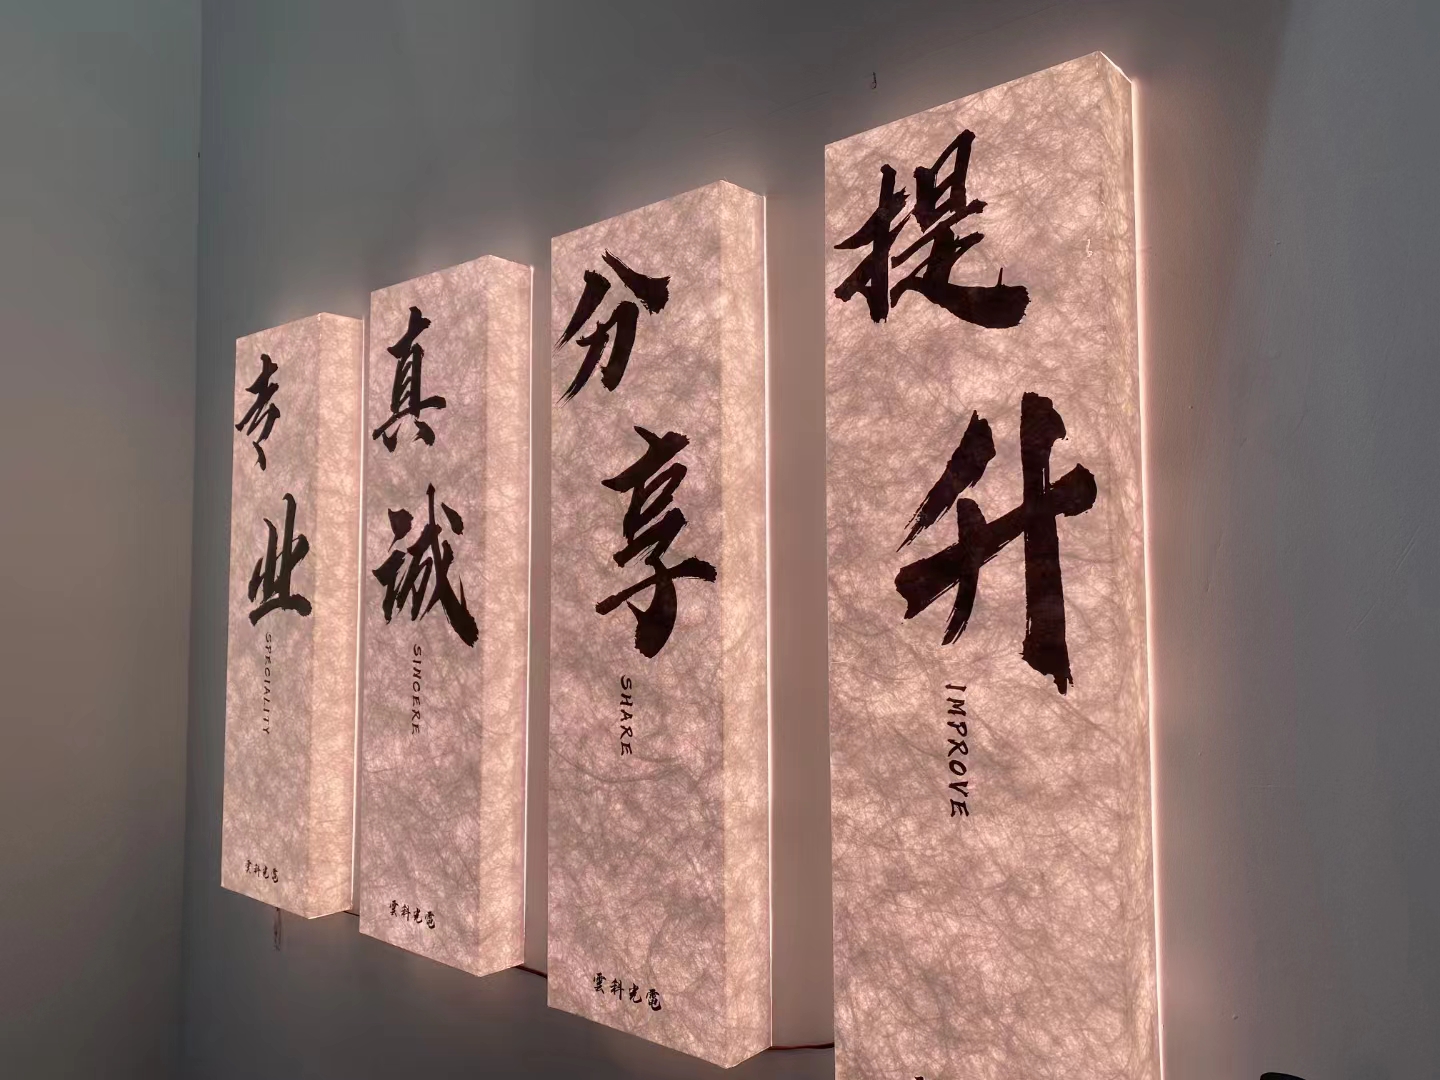 专业
SPECIALITY
雲科光電
真诚
SINCERE
雲科光電
分享
SHARE
雲科光電
提升
IMPROVE